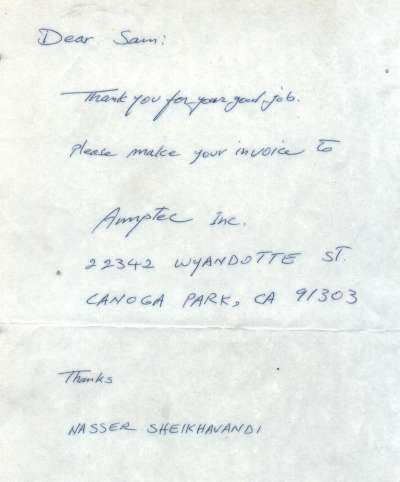 Dear Sam:
Thank you for your good job.
Please make your invoice to
Amptec Inc.
22342 WYANDOTTE ST.
CANOGA PARK, CA 91303
Thanks
NASSER SHEIKHAVANDI